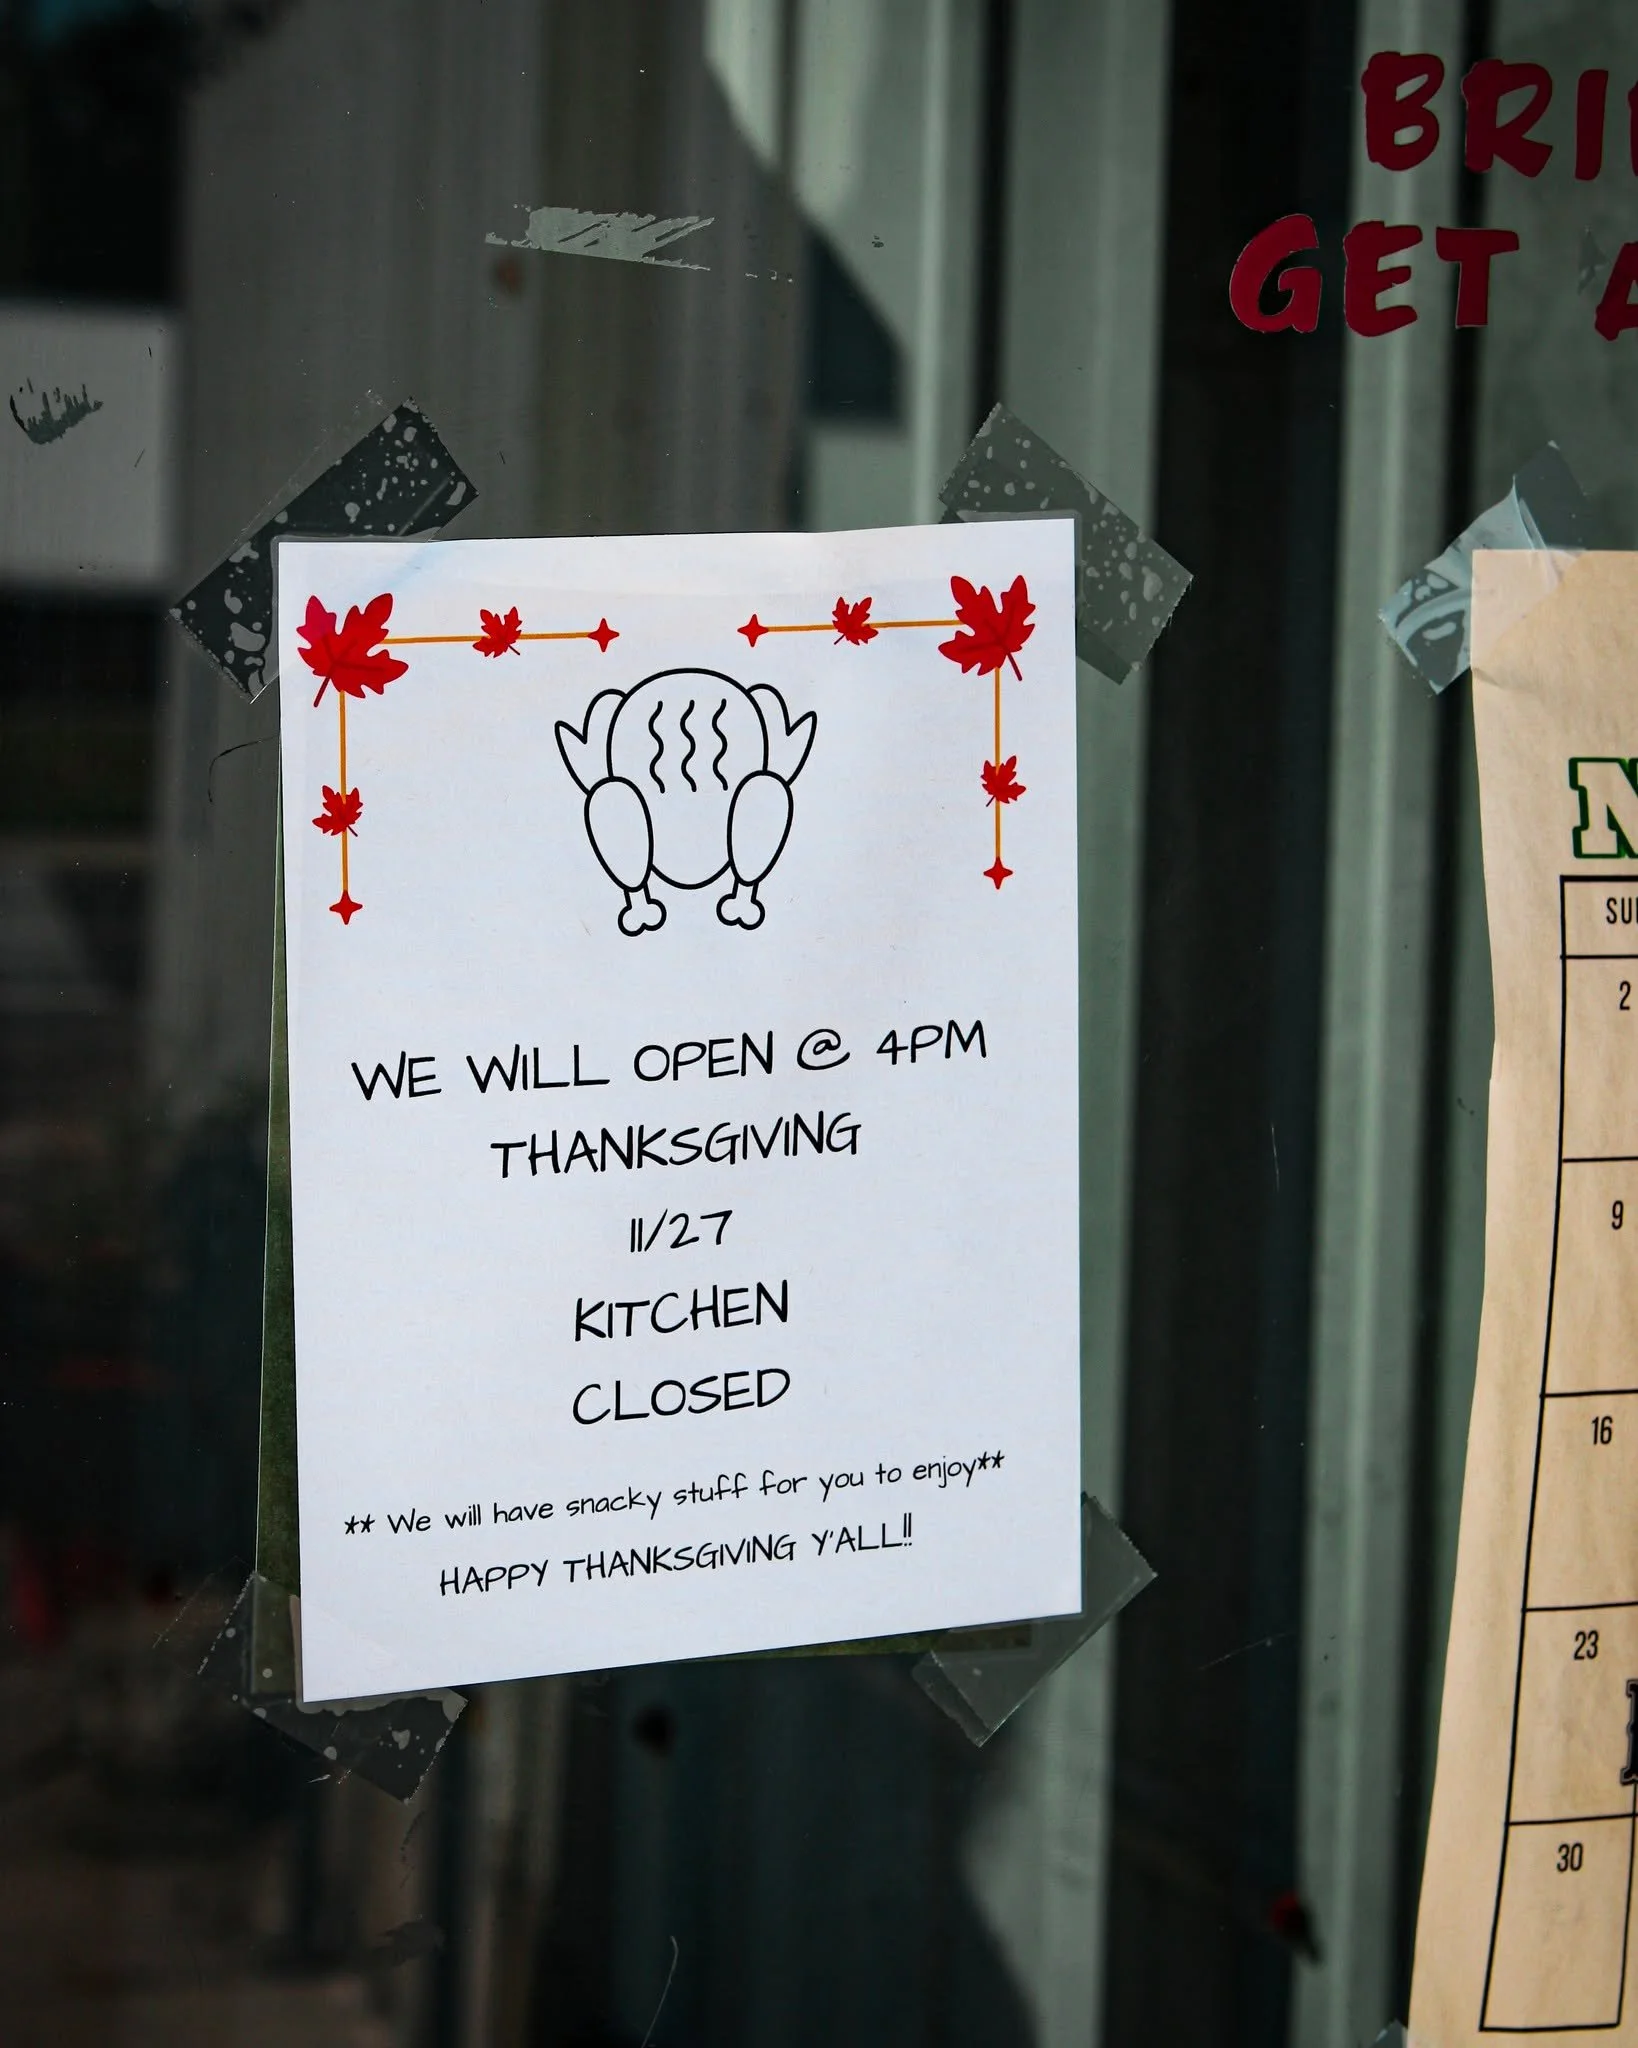 BRI
GET
WE WILL OPEN @ 4PM
THANKSGIVING
11/27
KITCHEN
CLOSED
** We will have snacky stuff for you to enjoy**
HAPPY THANKSGIVING Y'ALL!!
N
SU
2
9
16
23
30